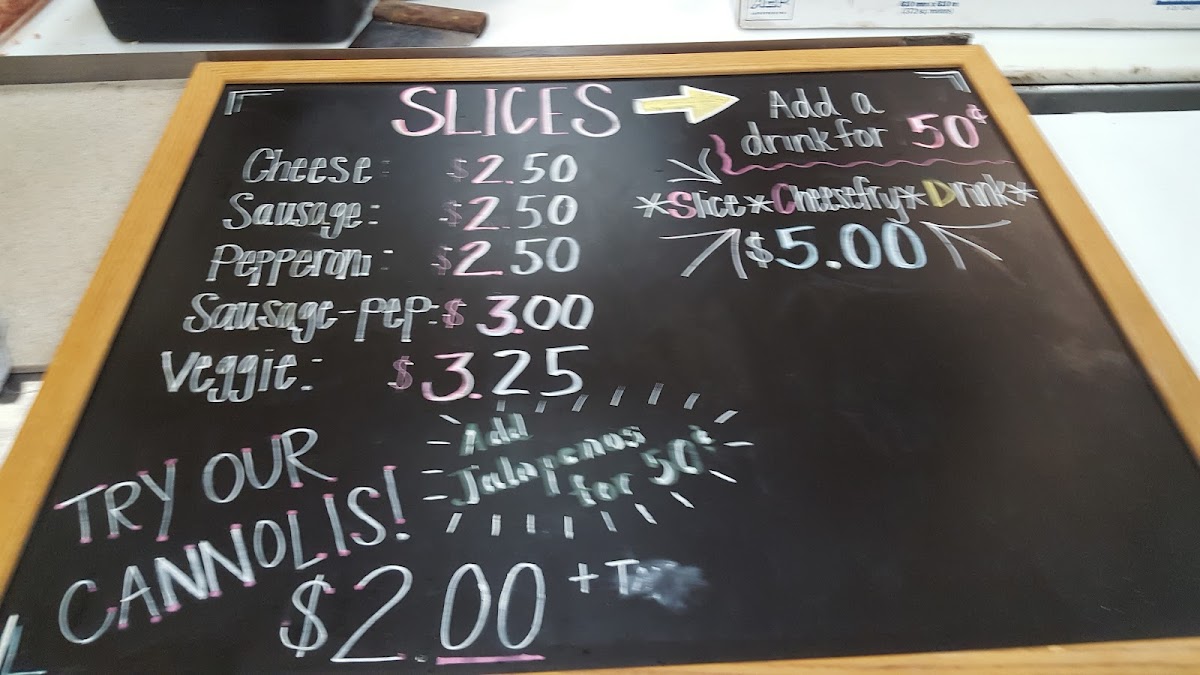 SLICES
Cheese: $2.50
Sausage: $2.50
Pepperoni: $2.50
Sausage-pep: $3.00
Veggie: $3.25
Add a
drink for 50¢
*Slice*Cheesefry*Drink*
$5.00
Add
Jalapenos
for 50¢
TRY OUR
CANNOLIS!
$2.00 +